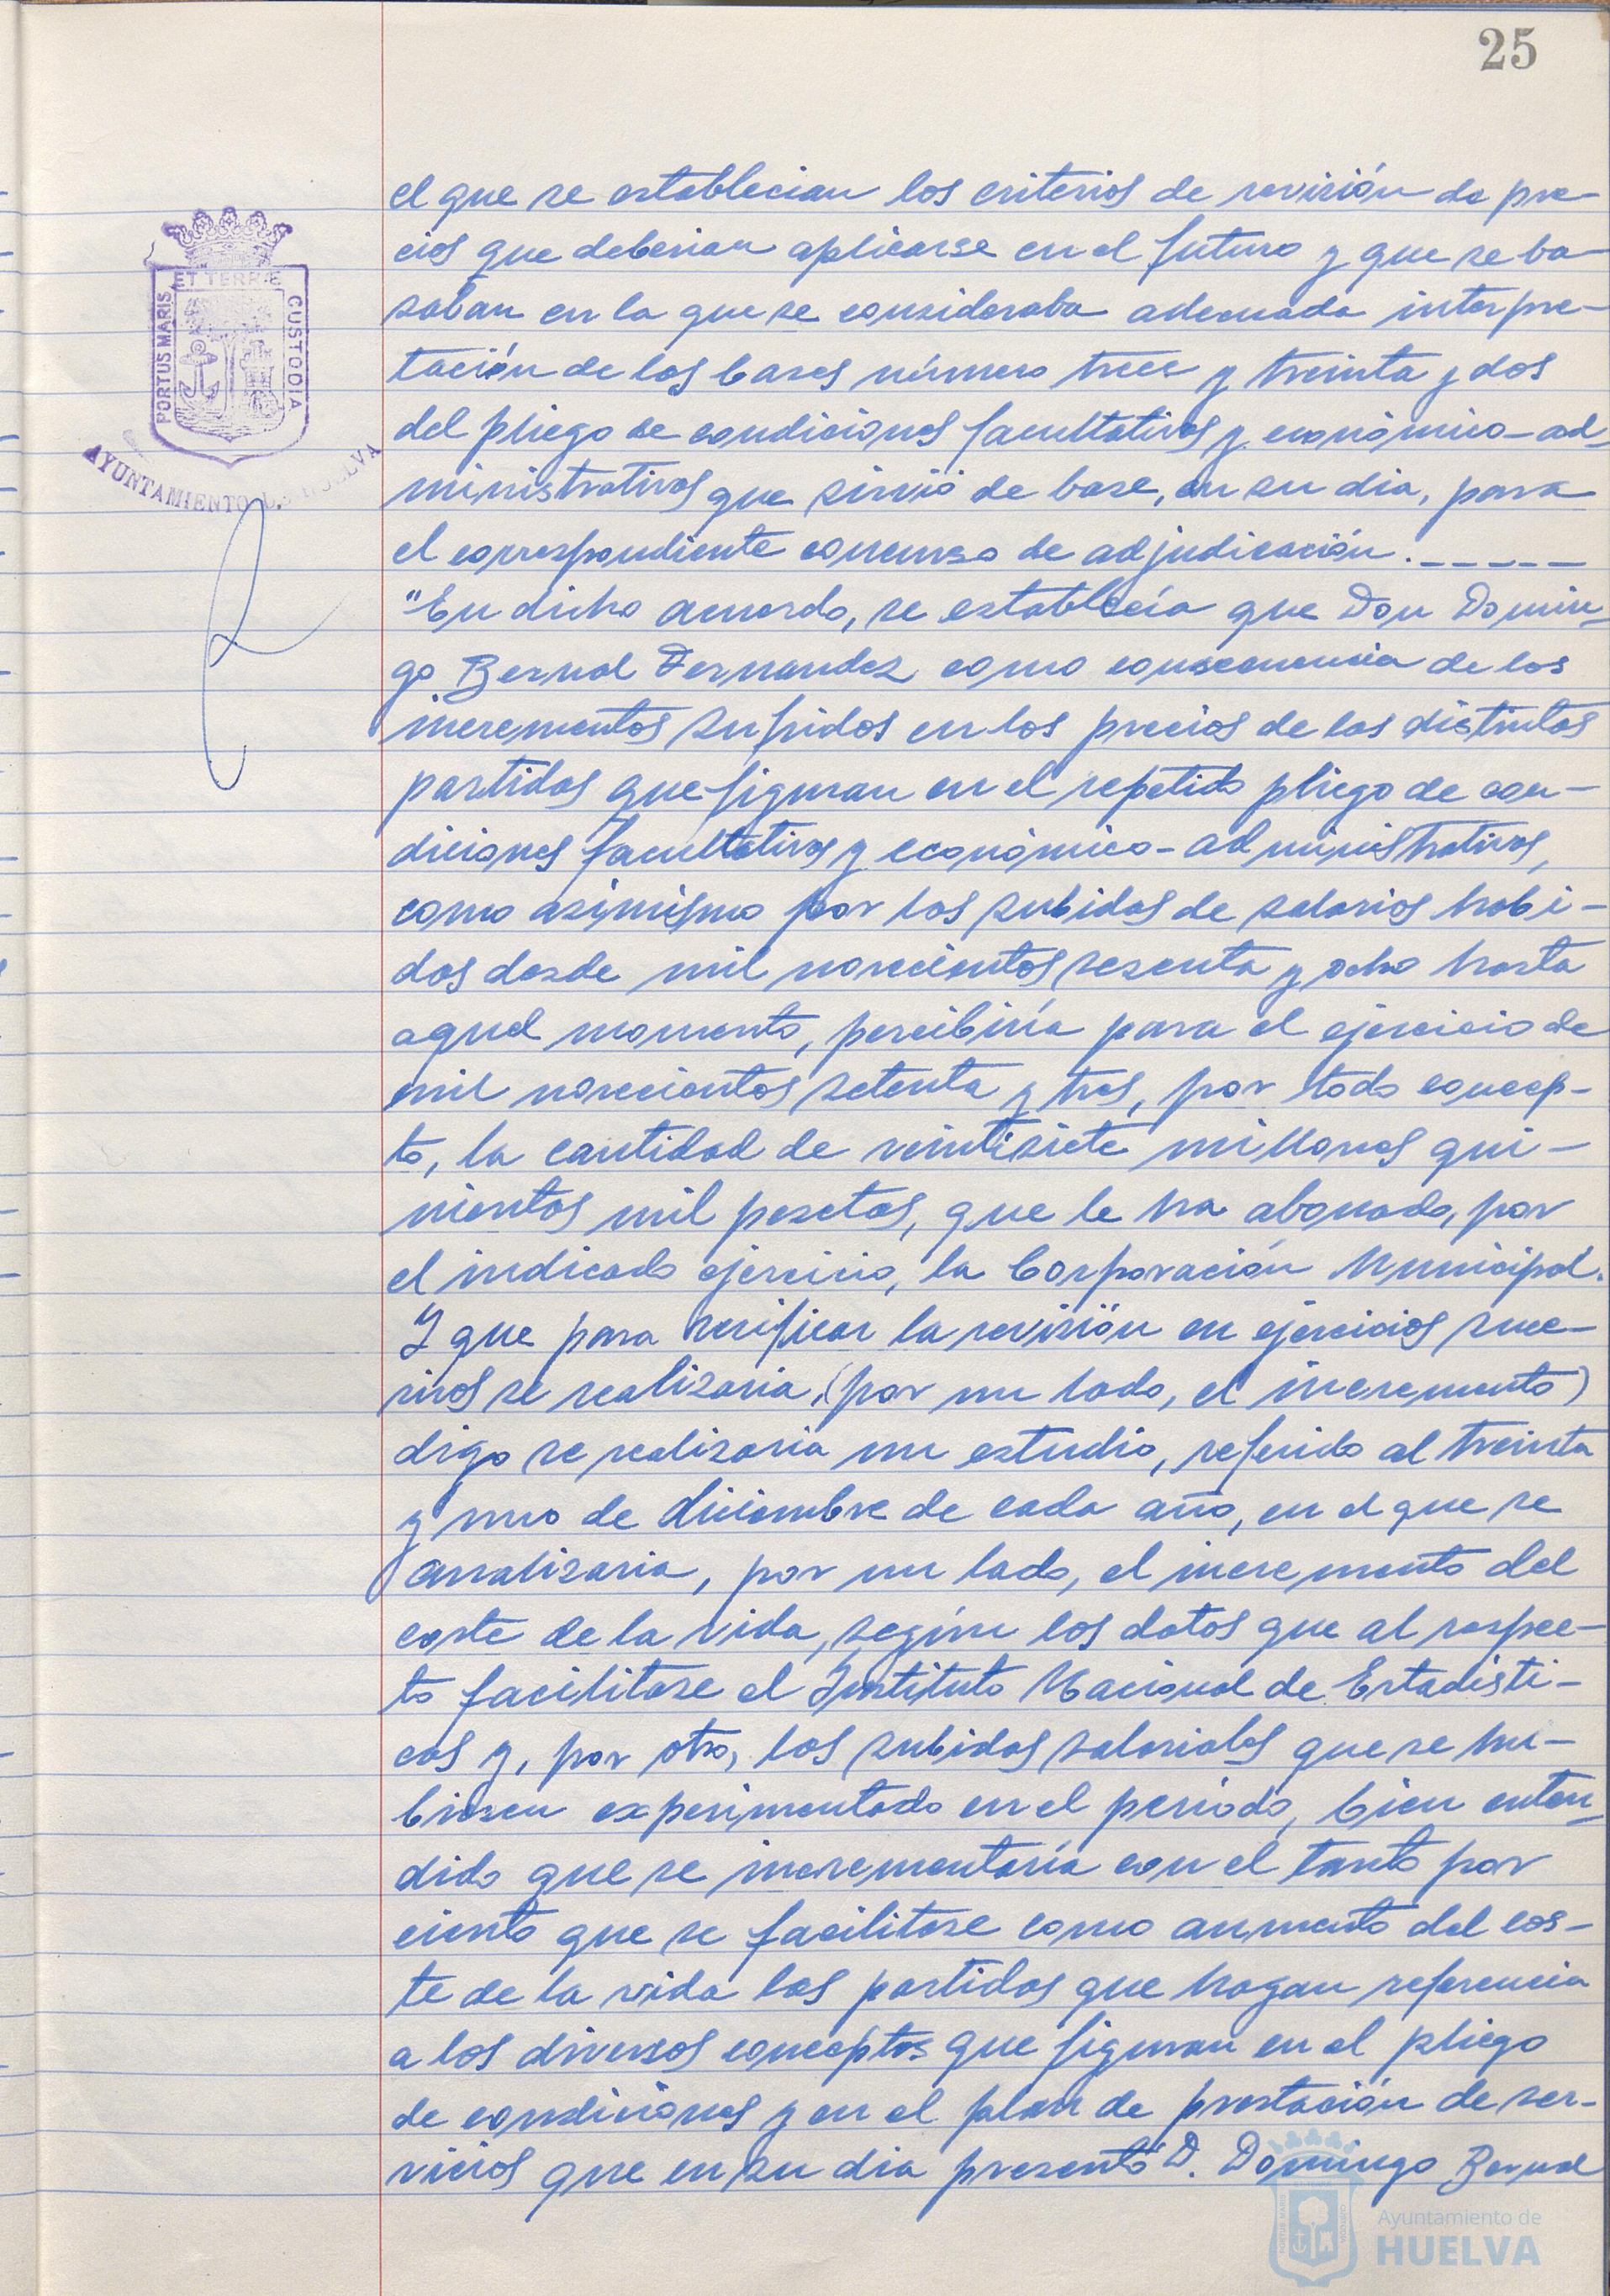 25
el que se establecian los criterios de revisión de pre-
cios que deberian aplicarse en el futuro y que se ba-
saban en la que se consideraba adecuada interpre-
tación de las bases número trece y treinta y dos
del pliego de condiciones facultativas y económico-ad-
ministrativas que sirvió de base, en su dia, para
el correspondiente concurso de adjudicación. - - - - -
"En dicho acuerdo, se establecía que Don Domin-
go Bernal Fernandez como consecuencia de los
incrementos sufridos en los precios de las distintas
partidas que figuran en el repetido pliego de con-
diciones facultativas y económico-administrativas,
como asimismo por las subidas de salarios habi-
das desde mil novecientos sesenta y ocho hasta
aquel momento, percibiría para el ejercicio de
mil novecientos setenta y tres, por todo concep-
to, la cantidad de veintisiete millones qui-
nientas mil pesetas, que le ha abonado, por
el indicado ejercicio, la Corporación Municipal.
Y que para verificar la revisión en ejercicios suce-
sivos se realizaria, (por un lado, el incremento)
digo se realizaria un estudio, referido al treinta
y uno de diciembre de cada año, en el que se
analizaria, por un lado, el incremento del
coste de la vida, según los datos que al respec-
to facilitase el Instituto Nacional de Estadisti-
cas y, por otro, las subidas salariales que se hu-
biesen experimentado en el periodo, bien enten-
dido que se incrementaría con el tanto por
ciento que se facilitase como aumento del cos-
te de la vida las partidas que hagan referencia
a los diversos conceptos que figuran en el pliego
de condiciones y en el plan de prestación de ser-
vicios que en su dia presentó D. Domingo Bernal
PORTUS MARIS
ET TERRÆ
CUSTODIA
AYUNTAMIENTO DE HUELVA
Ayuntamiento de
HUELVA